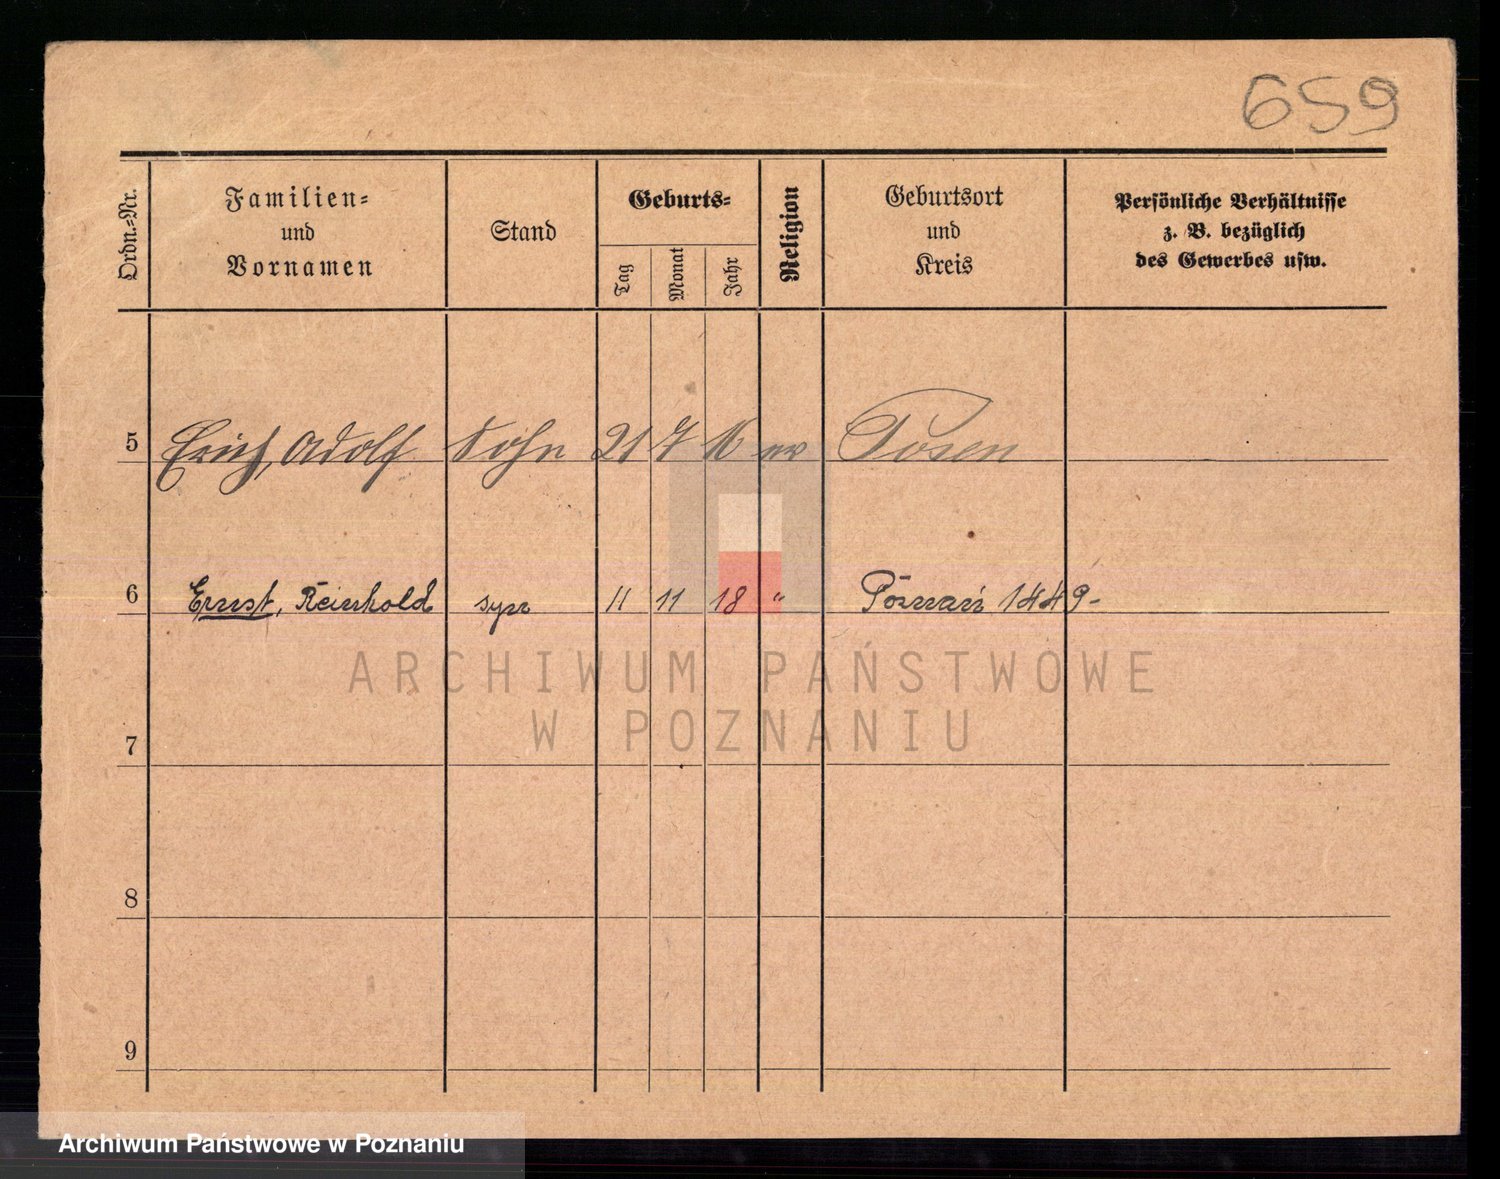 659
Ordn.=Nr.
Familien=
und
Vornamen
Stand
Geburts=
Tag
Monat
Jahr
Religion
Geburtsort
und
Kreis
Persönliche Verhältnisse
z. B. bezüglich
des Gewerbes usw.
5 Erich, Adolf Sohn 21 7 16 ev Posen
6 Ernst, Reinhold syn 11 11 18 " Poznań 1449-
ARCHIWUM PAŃSTWOWE
W POZNANIU
7
8
9
Archiwum Państwowe w Poznaniu